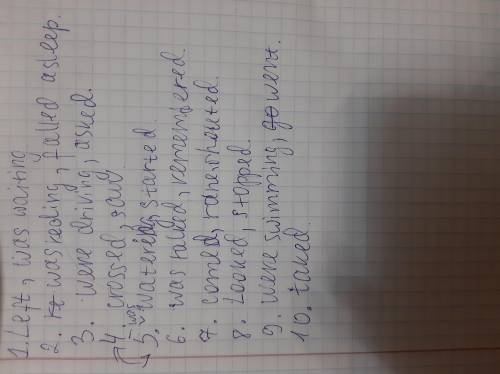 1. Left, was waiting
2. was reding, falled asleep.
3. were driving, asked.
4. crossed,
5. was watering, started
6. was talked, remembered.
7. comed, rane, shouted.
8. Looked, stopped.
9. were swimming, went.
10. taked.